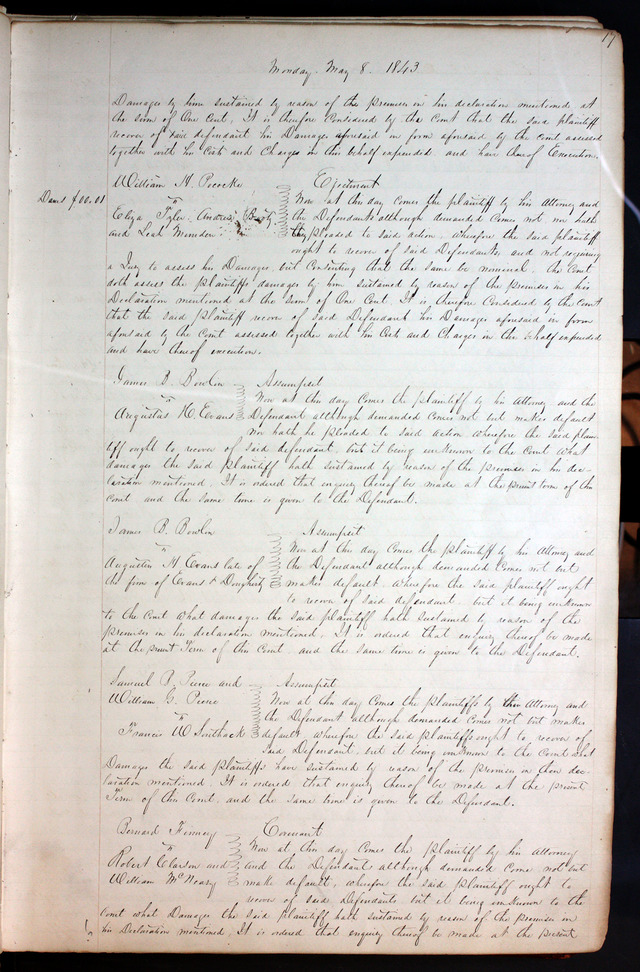 17
Monday May 8. 1843
Damages by him sustained by reason of the premises in his declaration mentioned at
the sum of One Cent, It is therefore Considered by the Court that the said plaintiff
recover of said defendant his Damages aforesaid in form aforesaid by the Court assessed
together with his Costs and Charges in this behalf expended, and have thereof Execution.
William H. Pococke
Ejectment
Dams $00.01
vs
Now at this day comes the plaintiff by his Attorney and
Eliza Tyler Andrew Beaty
the Defendants although demanded Comes not nor hath
and Leah
they pleaded to said action, wherefore the said plaintiff
ought to recover of said Defendants, and not requiring
a Jury to assess his Damages, but Consenting that the same be nominal, the Court
doth assess the plaintiffs damages by him sustained by reason of the premises in his
Declaration mentioned at the sum of One Cent. It is therefore Considered by the Court
that the said plaintiff recover of said Defendant his Damages aforesaid in form
aforesaid by the Court assessed together with his Costs and Charges in this behalf expended
and have thereof execution.
James B. Bowlin
Assumpsit
vs
Now at this day comes the plaintiff by his Attorney, and the
Augustus H. Evans
Defendant although demanded comes not but makes default
Nor hath he pleaded to said action wherefore the said plain
tiff ought to recover of said defendant, but it being unknown to the Court what
damages the said plaintiff hath sustained by reason of the premises in his dec-
laration mentioned, It is ordered that enquiry thereof be made at the present term of this
Court and the same time is given to the Defendant.
James B. Bowlin
Assumpsit
vs
Now at this day comes the plaintiff by his Attorney and
Augustus H. Evans late of
the Defendant although demanded Comes not but
the firm of Evans & Dougherty
makes default. Wherefore the said plaintiff ought
to recover of said defendant, but it being unknown
to the Court what damages the said plaintiff hath sustained by reason of the
premises in his declaration mentioned, It is ordered that enquiry thereof be made
at the present Term of this Court, and the same time is given to the Defendant.
Samuel P. Pierce and
Assumpsit
William G. Pierce
Now at this day comes the plaintiffs by their Attorney and
vs
the Defendant although demanded Comes not but makes
Francis W. Southack
default, wherefore the said plaintiffs ought to recover of
said Defendant, but it being unknown to the Court what
Damages the said plaintiffs have sustained by reason of the premises in their dec-
laration mentioned. It is ordered that enquiry thereof be made at the present
Term of this Court, and the same time is given to the Defendant.
Bernard Finney
Covenant
vs
Now at this day comes the plaintiff by his Attorney
Robert Clarson and
and the Defendants although demanded Come not but
William McNeary
make default, wherefore the said plaintiff ought to
recover of said Defendants, but it being unknown to the
Court what Damages the said plaintiff hath sustained by reason of the premises in
his Declaration mentioned. It is ordered that enquiry thereof be made at the present